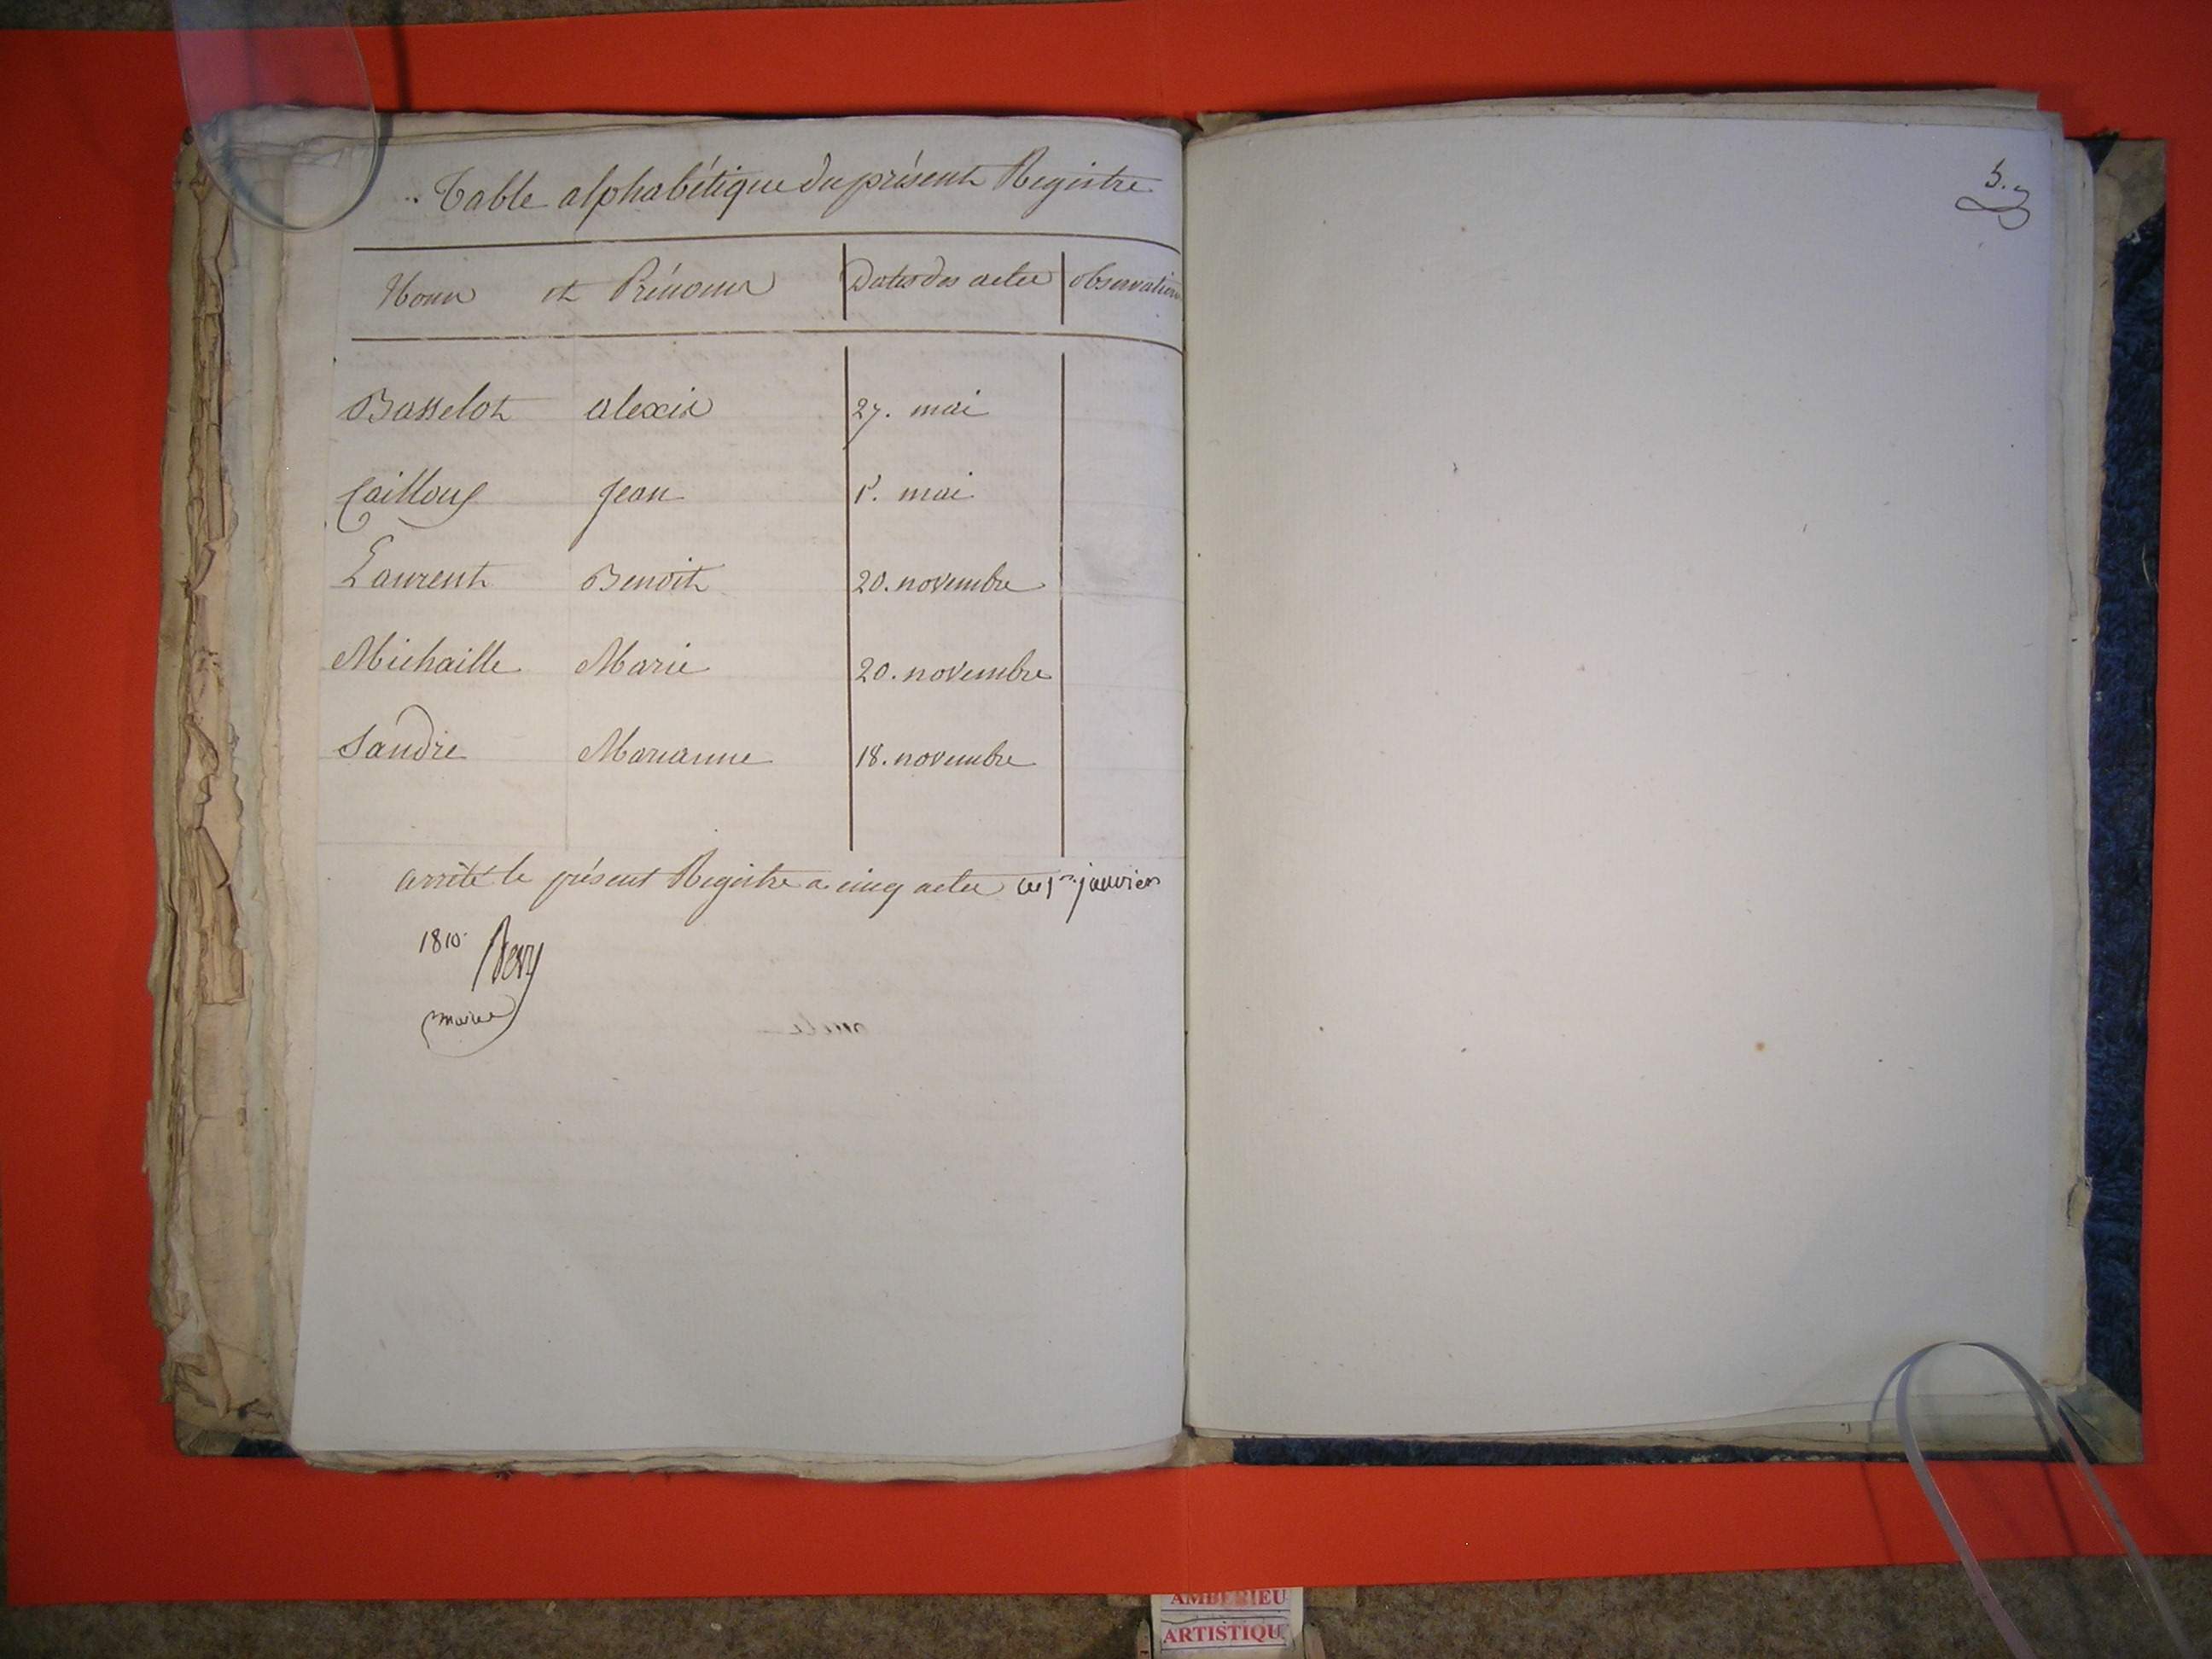 Table alphabétique du présent Registre
Noms et Prénoms Dates des actes observations
Basselot alexis 27. mai
Cailloux Jean 1er. mai
Laurent Benoit 20. novembre
Michaille Marie 20. novembre
Sandre Marianne 18. novembre
arrêté le présent Registre a cinq actes ce 1er janvier
1810.
maire
5.
AMBERIEU
ARTISTIQU